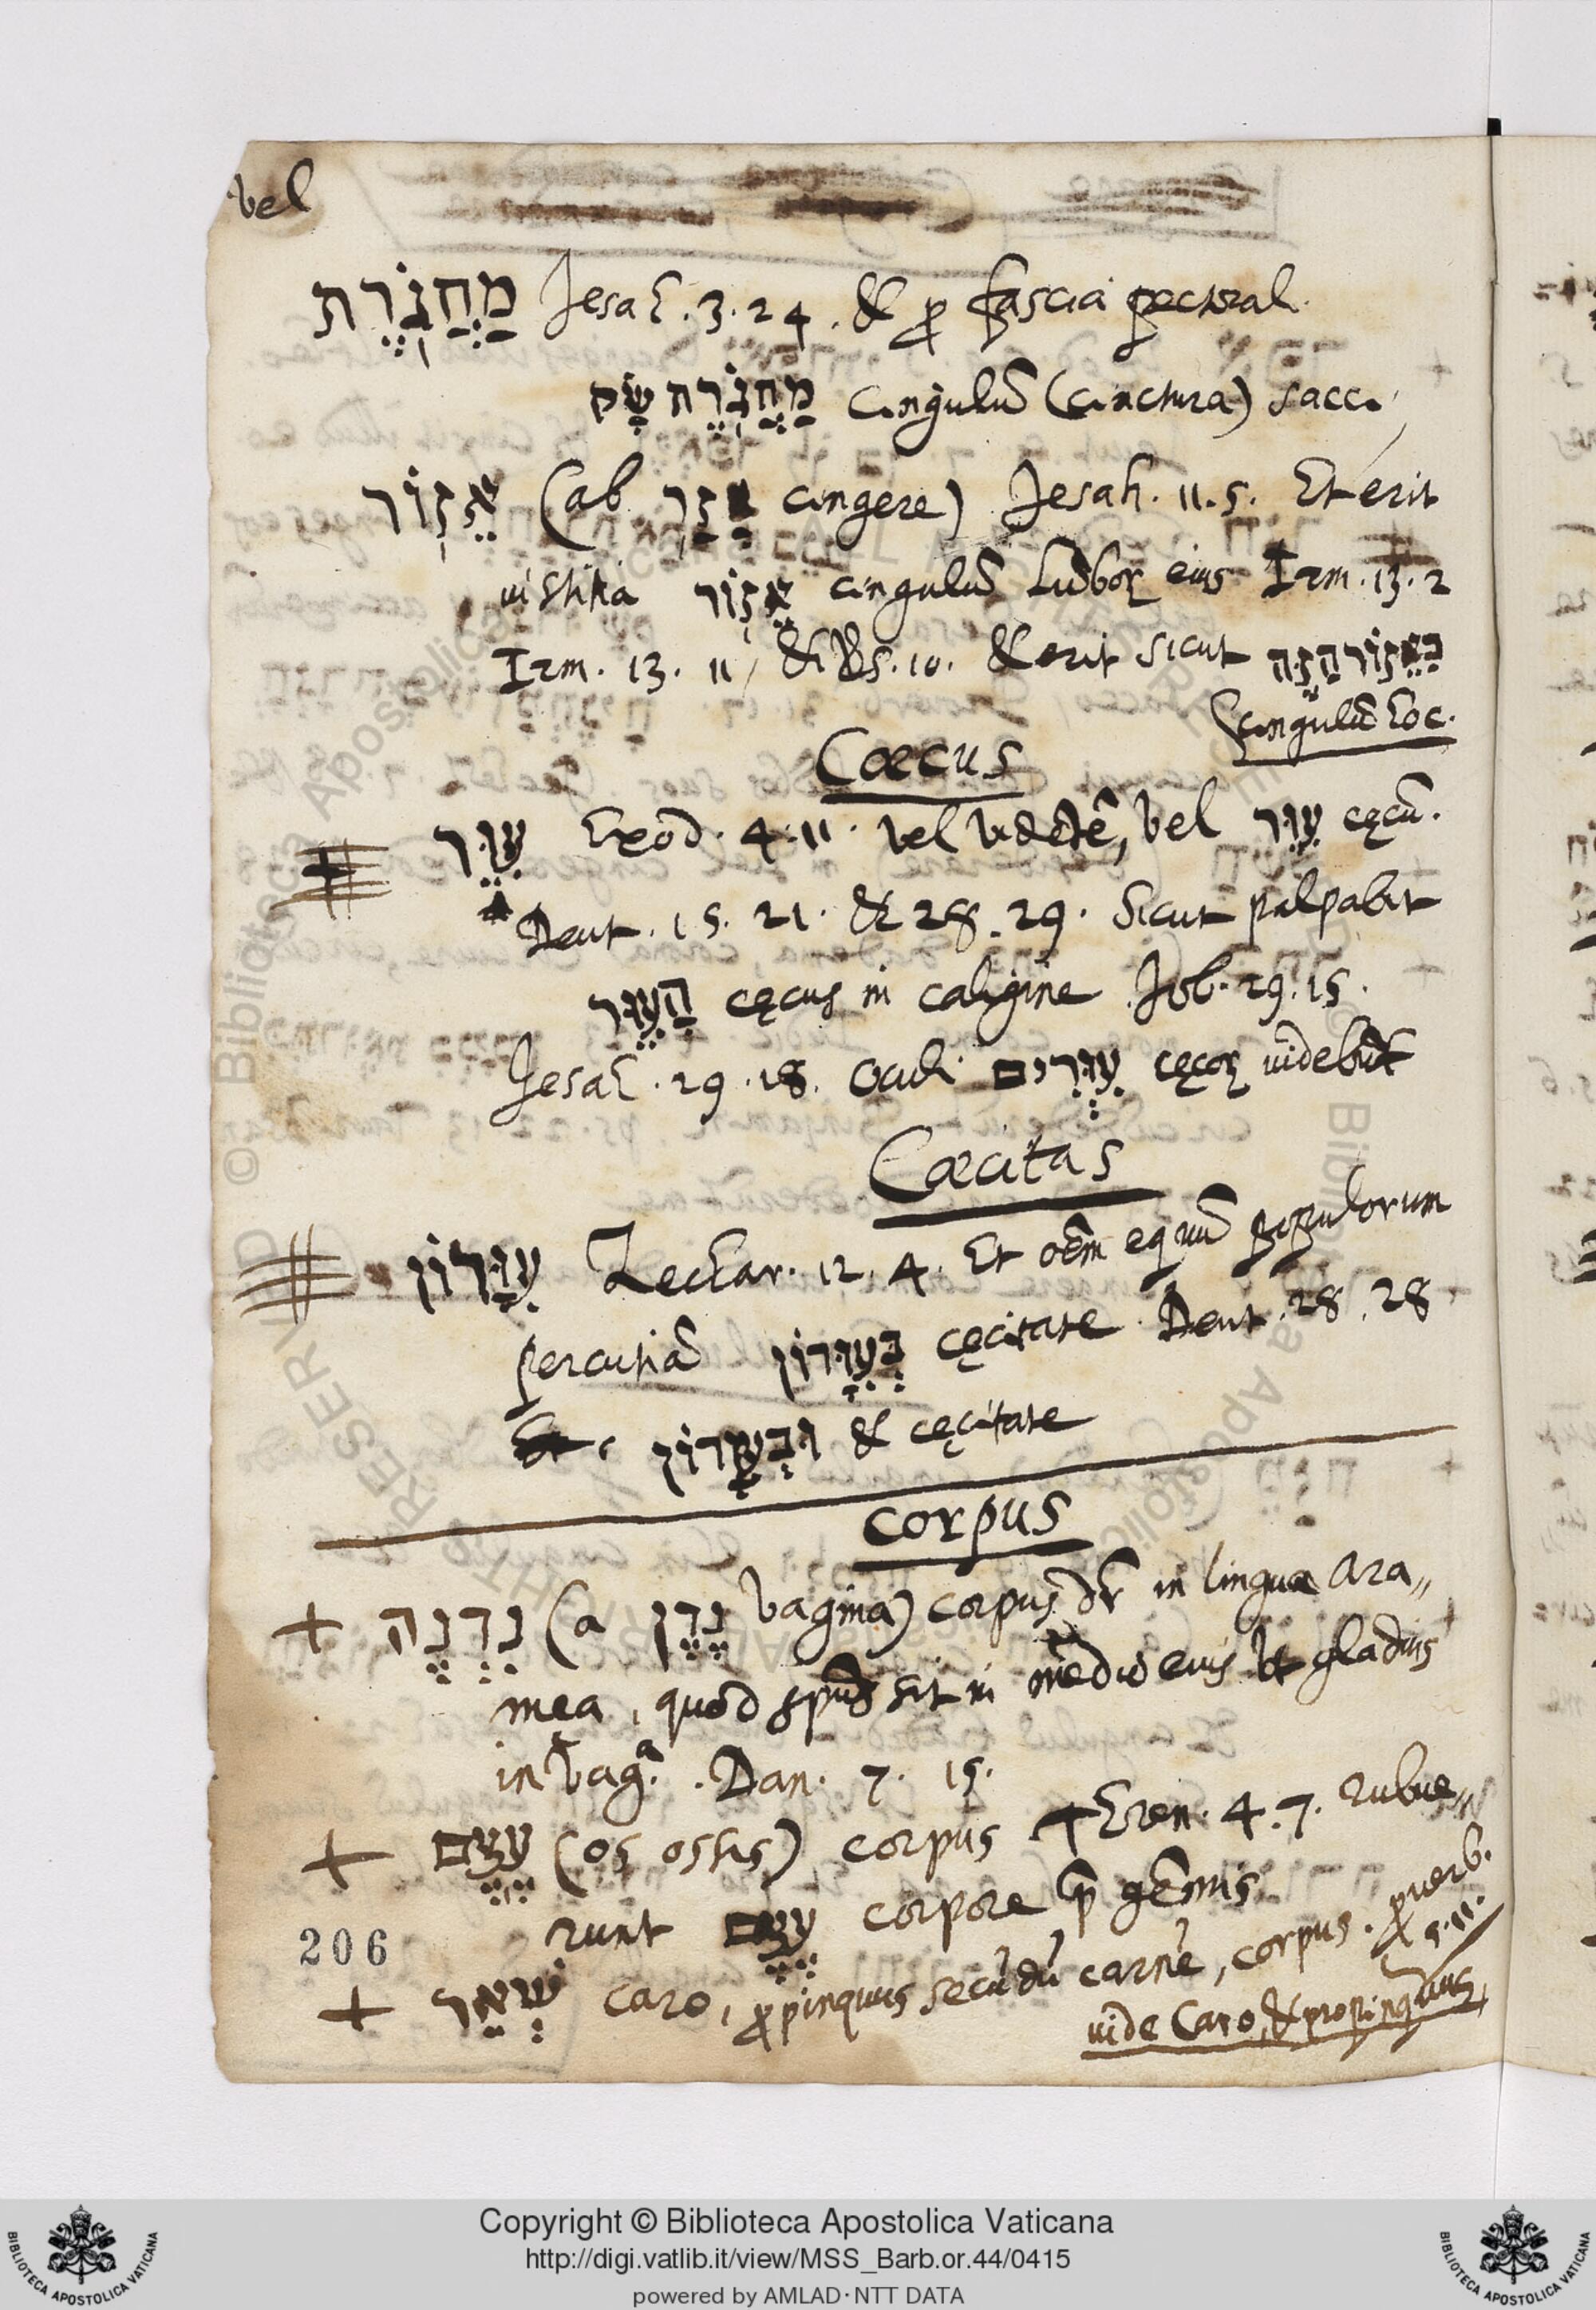 vel
מַחֲגֹרֶת Jesah. 3. 24. & ꝓ fascia pectoral.
מַחֲגֹרֶת שָׂק cingulũ (cinctura) sacci,
אֵזוֹר (ab אָזַר cingere) Jesah. 11. 5. Et erit
iustitia אֵזוֹר cingulũ lũboꝝ eius Irm. 13. 2
Irm. 13. 11, & Vs. 10. & erit sicut כָּאֵזוֹר הַזֶּה
cingulũ hoc.
Cœcus
עִוֵּר Exod. 4. 11. vel vidẽtẽ, vel עִוֵּר cęcũ.
Deut. 15. 21. & 28. 29. Sicut palpabit
הַעִוֵּר cęcus in caligine Job. 29. 15.
Jesah. 29. 18. oculi עִוְרִים cęcoꝝ videbũt
Cœcitas
עִוָּרוֹן Zechar. 12. 4. Et oẽm equũ populorum
percutiã בְּעִוָּרוֹן cęcitate Deut. 28. 28
וּבְעִוָּרוֹן & cęcitate
corpus
+ נִדְנֶה (a נָדָן vagina) corpus dr̃ in lingua Ara„
męa, quod spũs sit in medio eius ut gladius
in vag.ª Dan. 7. 15.
+ עֶצֶם (os ossis) corpus Eren. 4. 7. Rubue„
runt עֶצֶם corpore p̃ gẽmis
206
+ שְׁאֵר caro, ꝓpinquus secũdũ carnẽ, corpus. ꝓverb.
5. 11.
vide Caro, & propinquus,
© Biblioteca Apostolica Vaticana
Copyright © Biblioteca Apostolica Vaticana
http://digi.vatlib.it/view/MSS_Barb.or.44/0415
powered by AMLAD·NTT DATA
BIBLIOTECA APOSTOLICA VATICANA
BIBLIOTECA APOSTOLICA VATICANA